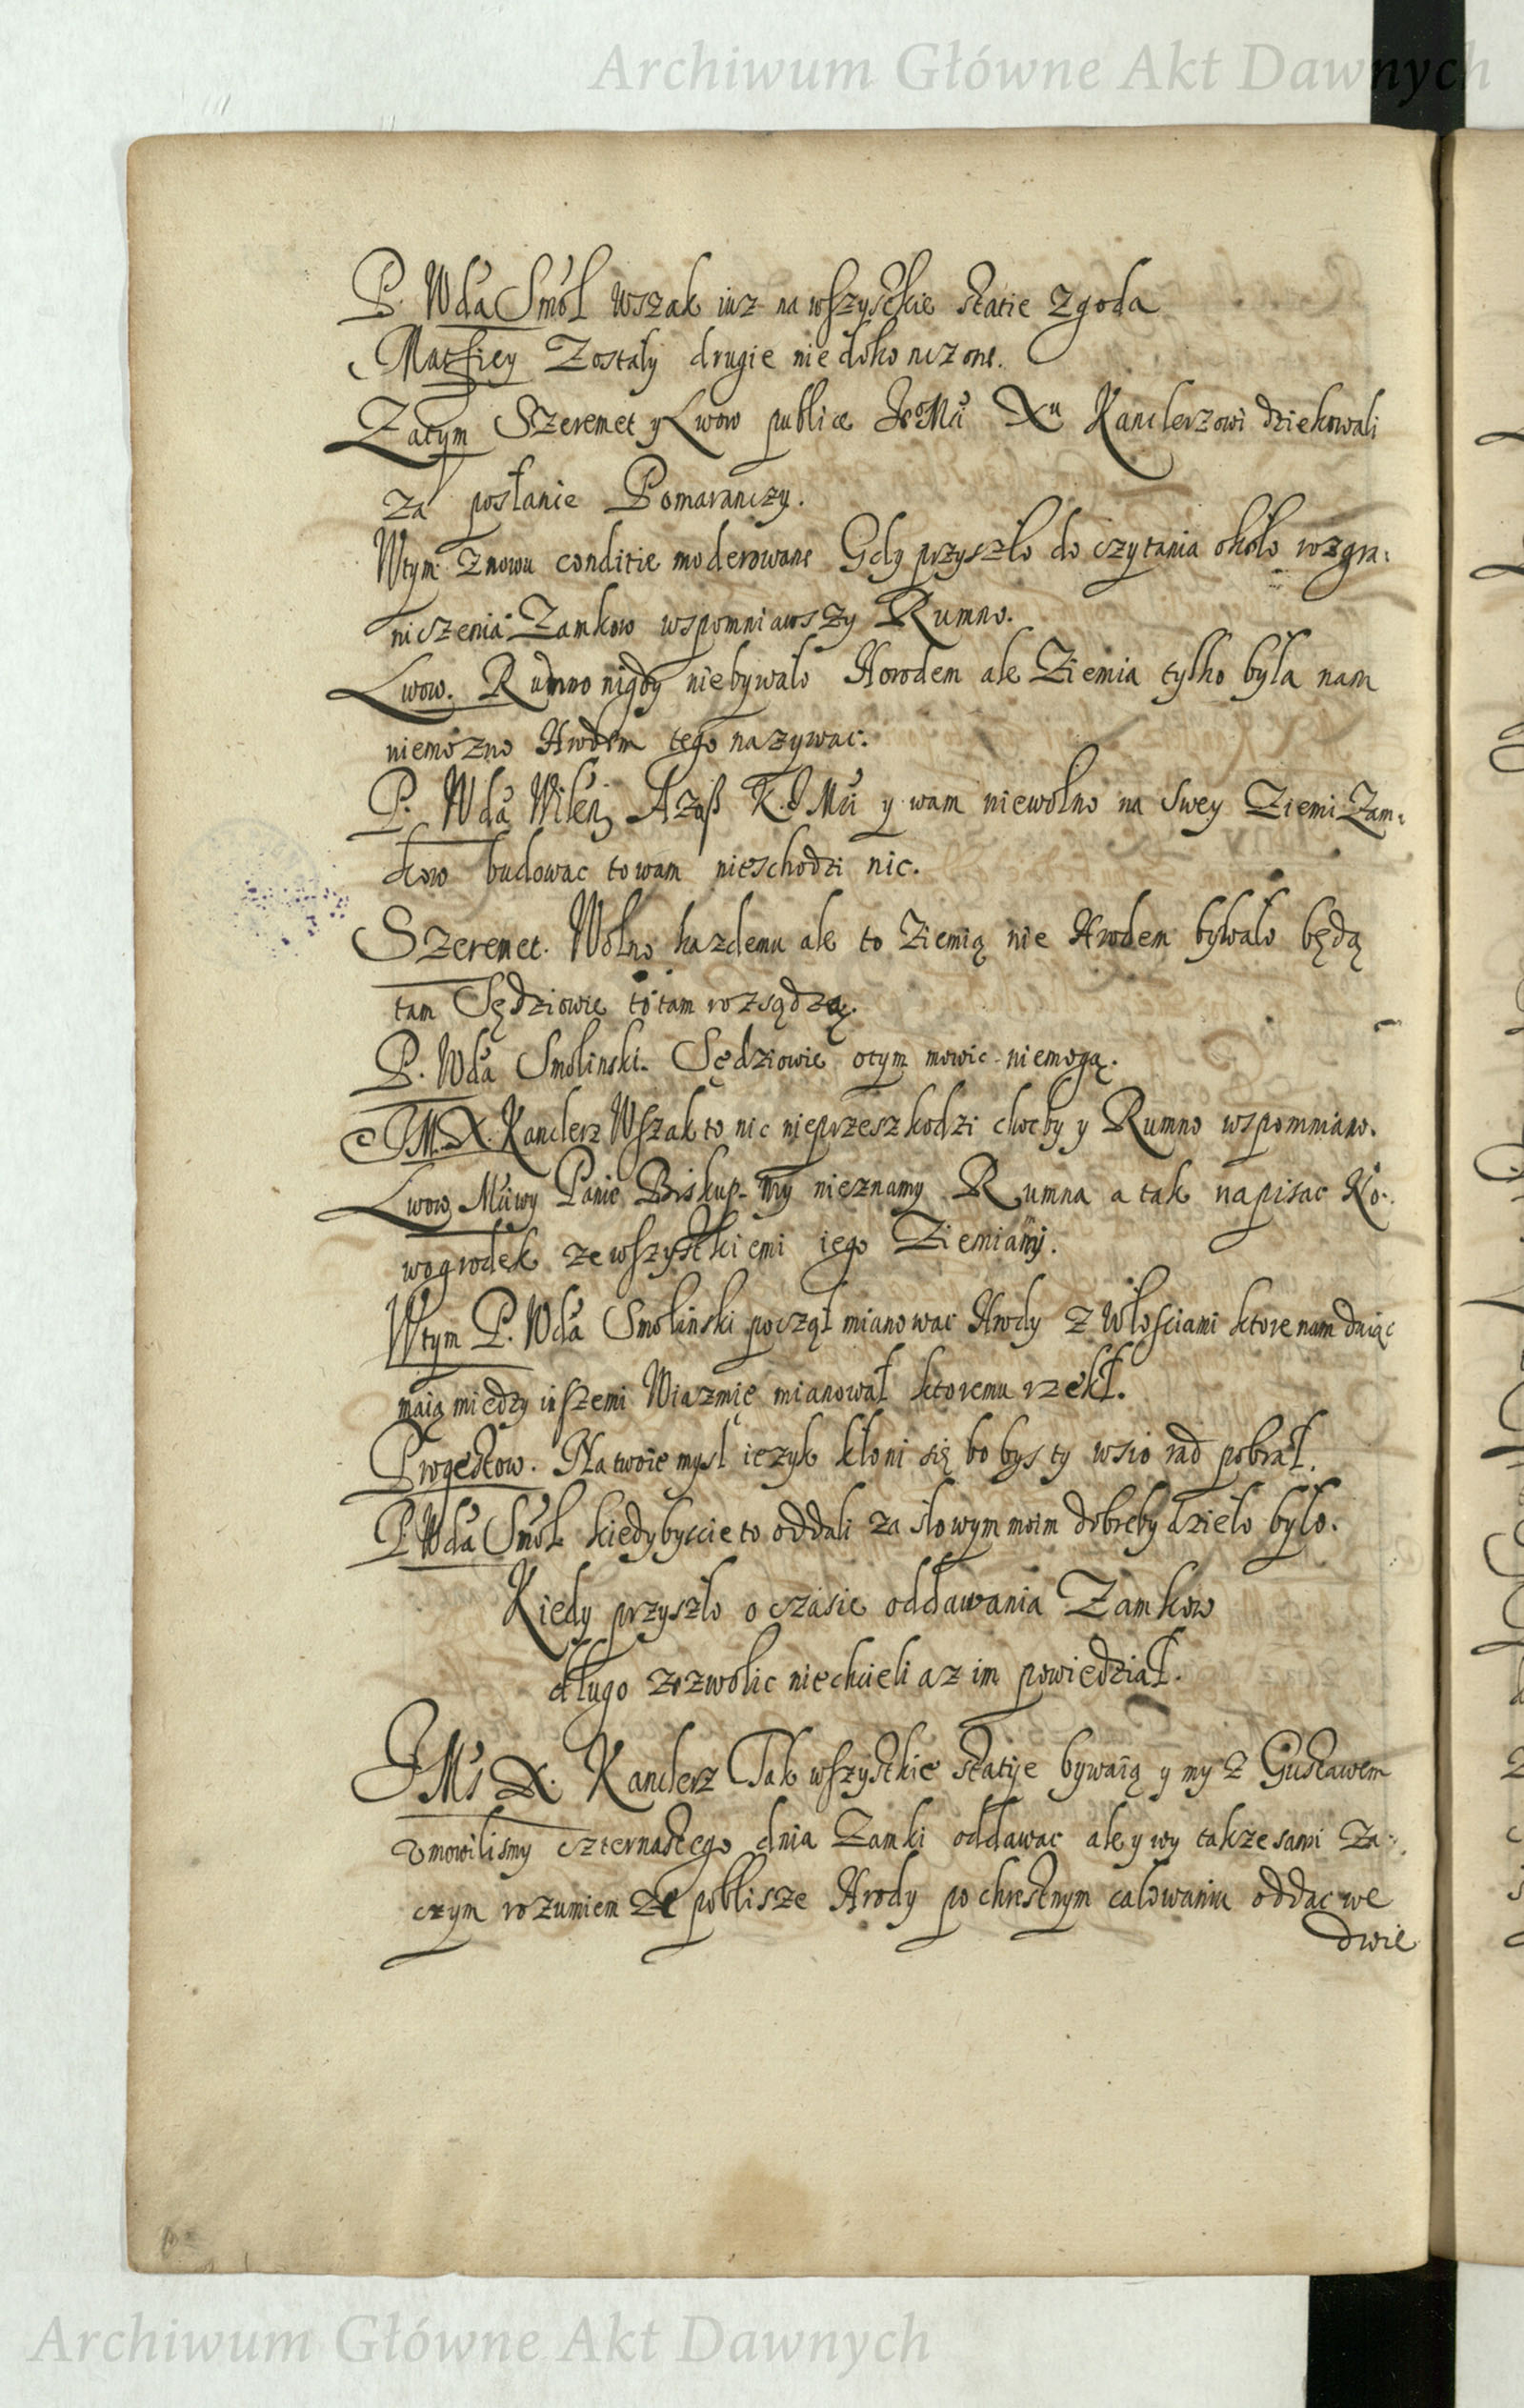 Archiwum Główne Akt Dawnych
P. Wda Smol wszak iuz na wszystkie statie zgoda
Matfiey Zostały drugie niedokonczone.
Zatym Szeremet y Lwow publice Je° Mci Xu Kanclerzowi dziekowali
za posłanie Pomaranczy.
Wtym znowu conditie moderowane Gdy przyszło do czytania około rozgra:
niczenia Zamkow wspomniawszy Rumno.
Lwow. Rumno nigdy niebywało Horodem ale Ziemia tylko była nam
niemozno Hrodem tego nazywac.
P. Wda Wilen Azasz K. J Mci y wam niewolno na swey Ziemi Zam:
kow budowac to wam nieschodzi nic.
Szeremet. Wolno kazdemu ale to Ziemią nie Hrodem bywało będą
tam Sędziowie to tam rozsądzą.
P. Wda Smolinski. Sędziowie otym mowic niemogą.
J M. X. Kanclerz Wszak to nic nieprzeszkodzi chocby y Rumno wspomniano.
Lwow Panie Biskup my nieznamy Rumna a tak napisac No:
wogrodek ze wszystkiemi iego Ziemiami.
Wtym P. Wda Smolinski począł mianowac Hrody z Włosciami ktore nam daiąc
maią miedzy inszemi Wiazmię mianował ktoremu rzekł.
Progestow. Na twoie mysl iezyk kłoni się bo bys ty wsio rad pobrał.
P Wda Smol. kiedybyscie to oddali za słowym moim dobreby dzieło było.
Kiedy przyszło o czasie oddawania Zamkow
długo zezwolic niechcieli az im powiedział.
J Mć X. Kanclerz Tak wszystkie statye bywaią y my z Gustawem
Umowilismy czternastego dnia Zamki oddawac ale y wy takze sami Za:
czym rozumiem ze poblisze Hrody po chrestnym całowaniu oddac we
dwie
Archiwum Główne Akt Dawnych